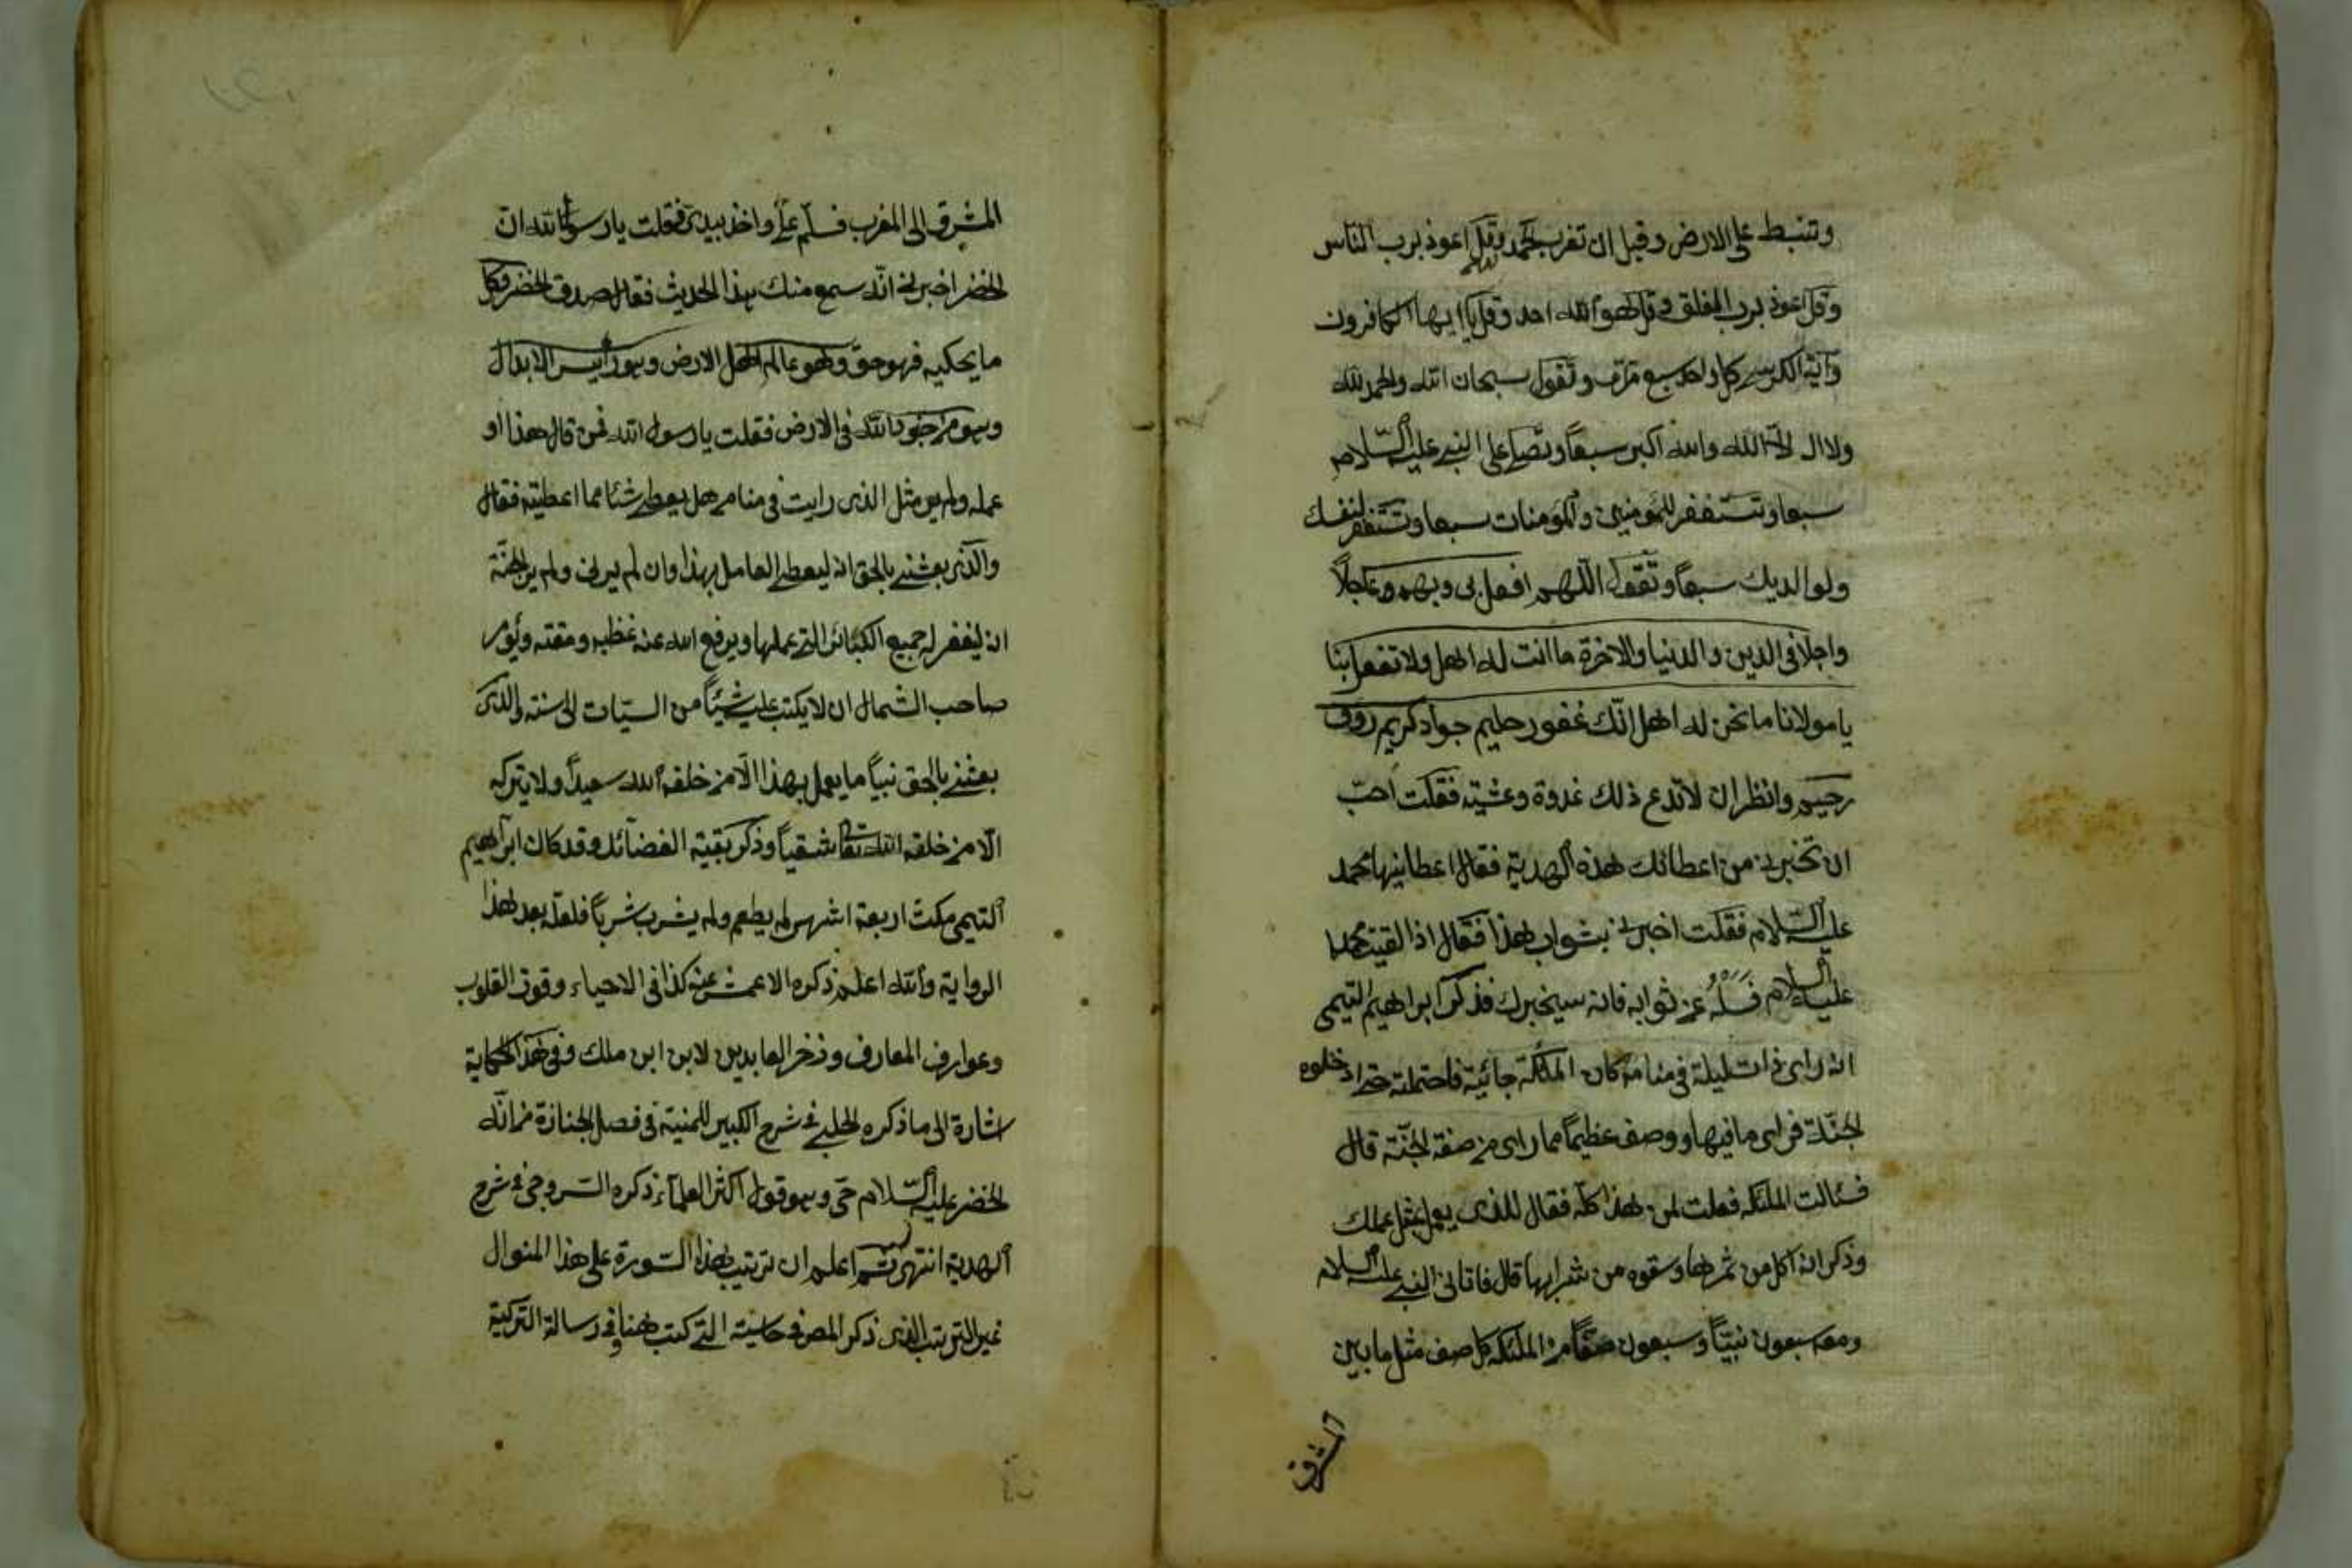 وتنبسط على الارض وقبل ان تغرب الحمد وقل اعوذ برب الناس
وقل اعوذ برب الفلق وقل هو الله احد وقل يا ايها الكافرون
وآية الكرسي كل واحد سبع مرّت وتقول سبحان الله والحمد لله
ولا اله الا الله والله اكبر سبعاً وتصلي على النبي عليه السّلام
سبعا وتستغفر للمؤمنين والمؤمنات سبعا وتستغفر لنفسك
ولوالديك سبعاً وتقول اللهم افعل بى وبهم عاجلاً
واجلا فى الدين والدنيا والاخرة ما انت له اهل ولا تفعل بنا
يا مولانا ما نحن له اهل انّك غفور حليم جواد كريم رؤف
رحيم وانظر ان لا تدع ذلك غدوة وعشيّة فقلت احبّ
ان تخبرنى من اعطائك هذه الهدية فقال اعطانيها محمد
عليه السّلام فقلت اخبرنى بثواب هذا فقال اذا لقيت محمدا
عليه السلام فسله عن ثوابه فانه سيخبرك فذكر ابراهيم التيمى
انه راى ذات ليلة فى منامه كان الملئكة جائية فاحتملته حتى ادخلوه
الجنّة فراى ما فيها ووصف عظيماً مما راى من صفة الجنّة قال
فسئالت الملئكة فقلت لمن هذا كلّه فقال للذى يعمل بمثل عملك
وذكر انه اكل من ثمرها وسقوه من شرابها قال فاتانى النبي عليه السلام
ومعه سبعون نبيّاً وسبعون صفّاً من الملئكة كل صف مثل ما بين
المشرق
المشرق الى المغرب فسلّم علىّ واخذ بيدى فقلت يا رسول الله انّ
الخضر اخبرنى انّه سمع منك هذا الحديث فقال صدق الخضر وكل
ما يحكيه فهو حق وهو عالم اهل الارض وهو رأيس الابدال
وهو من جنود الله فى الارض فقلت يا رسول الله فمن قال هذا او
عمله ولم ير مثل الذى رايت فى منامى هل يعطى شئا مما اعطيته فقال
والذى بعثنى بالحق انه ليعطى العامل بهذا وان لم يرنى ولم ير الجنّة
انه ليغفر له جميع الكبائر التى عملها ويرفع الله عنه غظبه ومقته ويؤمر
صاحب الشمال ان لا يكتب عليه شيئاً من السيّات الى سنة والذى
بعثنى بالحق نبياً ما يعمل بهذا الّا من خلقه الله سعيداً ولا يتركه
الّا من خلقه الله تعالى شقياً وذكر بقية الفضائل وقد كان ابراهيم
التيمى مكث اربعة اشهر لم يطعم ولم يشرب شرباً فلعلّه بعد هذا
الرواية والله اعلم ذكره الاعمش عنه كذا فى الاحياء وقوت القلوب
وعوارف المعارف وذخر العابدين لابن ابن ملك وفى هذه الحكاية
اشارة الى ما ذكره الحلبى فى شرح الكبير للمنية فى فصل الجنازة من انّه
الخضر عليه السّلام حىّ وهو قول اكثر العلماء ذكره السّروجى فى شرح
الهدية انتهى ثم اعلم ان ترتيب هذا السّورة على هذا المنوال
غير الترتيب الذى ذكر المص فى حاشيته التى كتب هنا وفى رسالة التركية